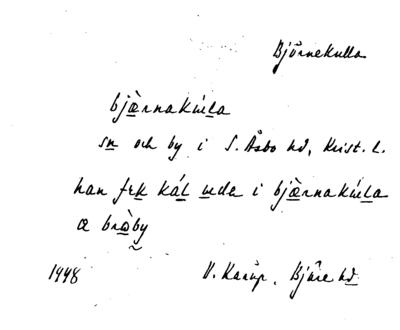 Björnekulla
bjæ̀rnakúila
sn och by i S. Åsbo hd, Krist. l.
han fek kál uda i bjæ̀rnakúila
a bròby
1948 V. Karup, Bjäre hd